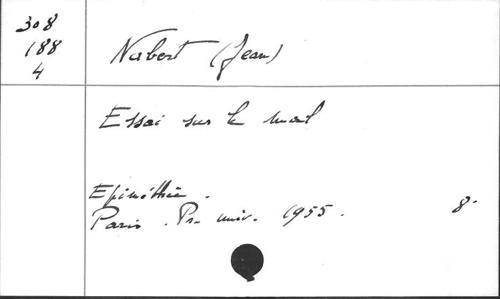 308
188
4
Nabert (Jean)
Essai sur le mal
Epiméthée.
Paris. Pr. univ. 1955. 8°